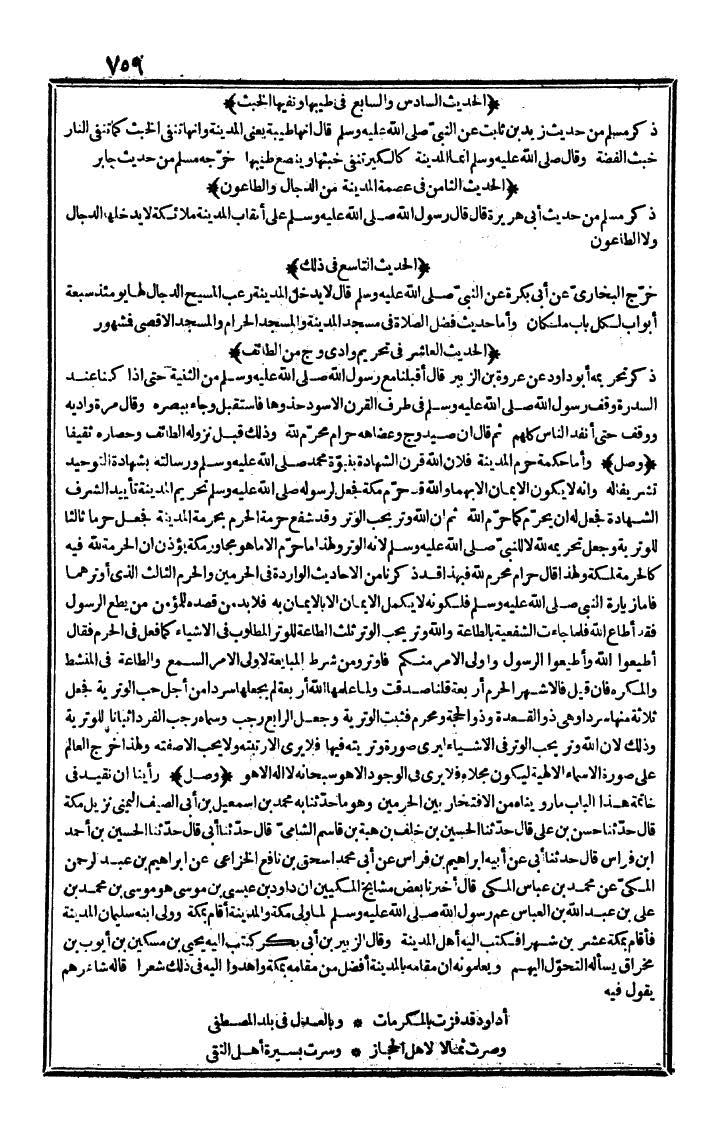 ٧٥٩
﴿الحديث السادس والسابع في طيبها ونفيها الخبث﴾
ذكر مسلم من حديث زيد بن ثابت عن النبيّ صلى الله عليه وسلم قال انها طيبة يعني المدينة وانها تنفي الخبث كما تنفي النار
خبث الفضة وقال صلى الله عليه وسلم انما المدينة كالكير تنفي خبثها وينصع طيبها خرّجه مسلم من حديث جابر
﴿الحديث الثامن في عصمة المدينة من الدجال والطاعون﴾
ذكر مسلم من حديث أبي هريرة قال قال رسول الله صلى الله عليه وسلم على أنقاب المدينة ملائكة لا يدخلها الدجال
ولا الطاعون
﴿الحديث التاسع في ذلك﴾
خرّج البخاريّ عن أبي بكرة عن النبيّ صلى الله عليه وسلم قال لا يدخل المدينة رعب المسيح الدجال لها يومئذ سبعة
أبواب لكل باب ملكان وأما حديث فضل الصلاة في مسجد المدينة والمسجد الحرام والمسجد الاقصى فشهور
﴿الحديث العاشر في تحريم وادي وج من الطائف﴾
ذكر تحريمه أبو داود عن عروة بن الزبير قال أقبلنا مع رسول الله صلى الله عليه وسلم من الثنية حتى اذا كنا عند
السدرة وقف رسول الله صلى الله عليه وسلم في طرف القرن الاسود حذوها فاستقبل وجاء ببصره وقال مرة واديه
ووقف حتى أنفد الناس كلهم ثم قال ان صيد وج وعضاهه حرام محرّم لله وذلك قبل نزوله الطائف وحصاره ثقيفا
﴿وصل﴾ وأما حكمة حرم المدينة فلان الله قرن الشهادة بنبوّة محمد صلى الله عليه وسلم ورسالته بشهادة التوحيد
تشريفا له وانه لا يكون الايمان الا بهما والله قد حرّم مكة فجعل لرسوله صلى الله عليه وسلم تحريم المدينة تأييد الشرف
الشهادة فجعل له ان يحرّم كما حرّم الله ثم ان الله وتر يحب الوتر وقد شفع حرمة الحرم بحرمة المدينة فجعل حرما ثالثا
للوترية وجعل تحريمه لله لا للنبيّ صلى الله عليه وسلم لانه الوتر ولهذا ما حرّم الا ما هو مجاور مكة يؤذن ان الحرمة لله فيه
كالحرمة لمكة ولهذا قال حرام محرم لله فبهذا قد ذكرنا من الاحاديث الواردة في الحرمين والحرم الثالث الذي أوترهما
فاما زيارة النبي صلى الله عليه وسلم فلكونه لا يكمل الايمان الا بالايمان به فلابد من قصده للمؤمن من يطع الرسول
فقد أطاع الله فلما جاءت الشفعية بالطاعة والله وتر يحب الوتر ثلث الطاعة للوتر المطلوب في الاشياء كما فعل في الحرم فقال
أطيعوا الله وأطيعوا الرسول واولى الامر منكم فاوتر ومن شرط المبايعة لاولى الامر السمع والطاعة في المنشط
والمكره فان قيل فالاشهر الحرم أربعة قلنا صدقت ولما علمها الله أربعة لم يجعلها سردا من أجل حب الوترية فجعل
ثلاثة منها سردا وهي ذو القعدة وذو الحجة ومحرم فثبت الوترية وجعل الرابع رجب وسماه رجب الفرد اثباتا للوترية
وذلك لان الله وتر يحب الوتر في الاشياء ليرى صورة وتريته فيها فلا يرى الا رتبته ولا يحب الا صفته ولهذا خرّج العالم
على صورة الاسماء الالهية ليكون مجلاه فلا يرى في الوجود الا هو سبحانه لا اله الا هو ﴿وصل﴾ رأينا ان نقيد في
خاتمة هذا الباب ما رويناه من الافتخار بين الحرمين وهو ما حدّثنا به محمد بن اسمعيل بن أبي الصيف اليمني نزيل مكة
قال حدّثنا حسن بن علي قال حدّثنا الحسين بن خلف بن هبة بن قاسم الشاميّ قال حدّثنا أبي قال حدّثنا الحسين بن أحمد
ابن فراس قال حدثنا أبي عن أبيه ابراهيم بن فراس عن أبي محمد اسحق بن نافع الخزاعي عن ابراهيم بن عبد الرحمن
المكيّ عن محمد بن عباس المكي قال أخبرنا بعض مشايخ المكيين ان داود بن عيسى بن موسى هو موسى بن محمد بن
علي بن عبد الله بن العباس عم رسول الله صلى الله عليه وسلم لما ولى مكة والمدينة أقام بمكة وولى ابنه سليمان المدينة
فأقام بمكة عشرين شهرا فكتب اليه أهل المدينة وقال الزبير بن أبي بكر كتب اليه يحيى بن مسكين بن أيوب بن
مخراق يسأله التحوّل اليهم ويعلمونه ان مقامه بالمدينة أفضل من مقامه بمكة واهدوا اليه في ذلك شعرا قاله شاعرهم
يقول فيه
أداود قد فزت بالمكرمات * وبالعدل في بلد المصطفى
وصرت ثمالا لاهل الحجاز * وسرت بسيرة أهل التقى